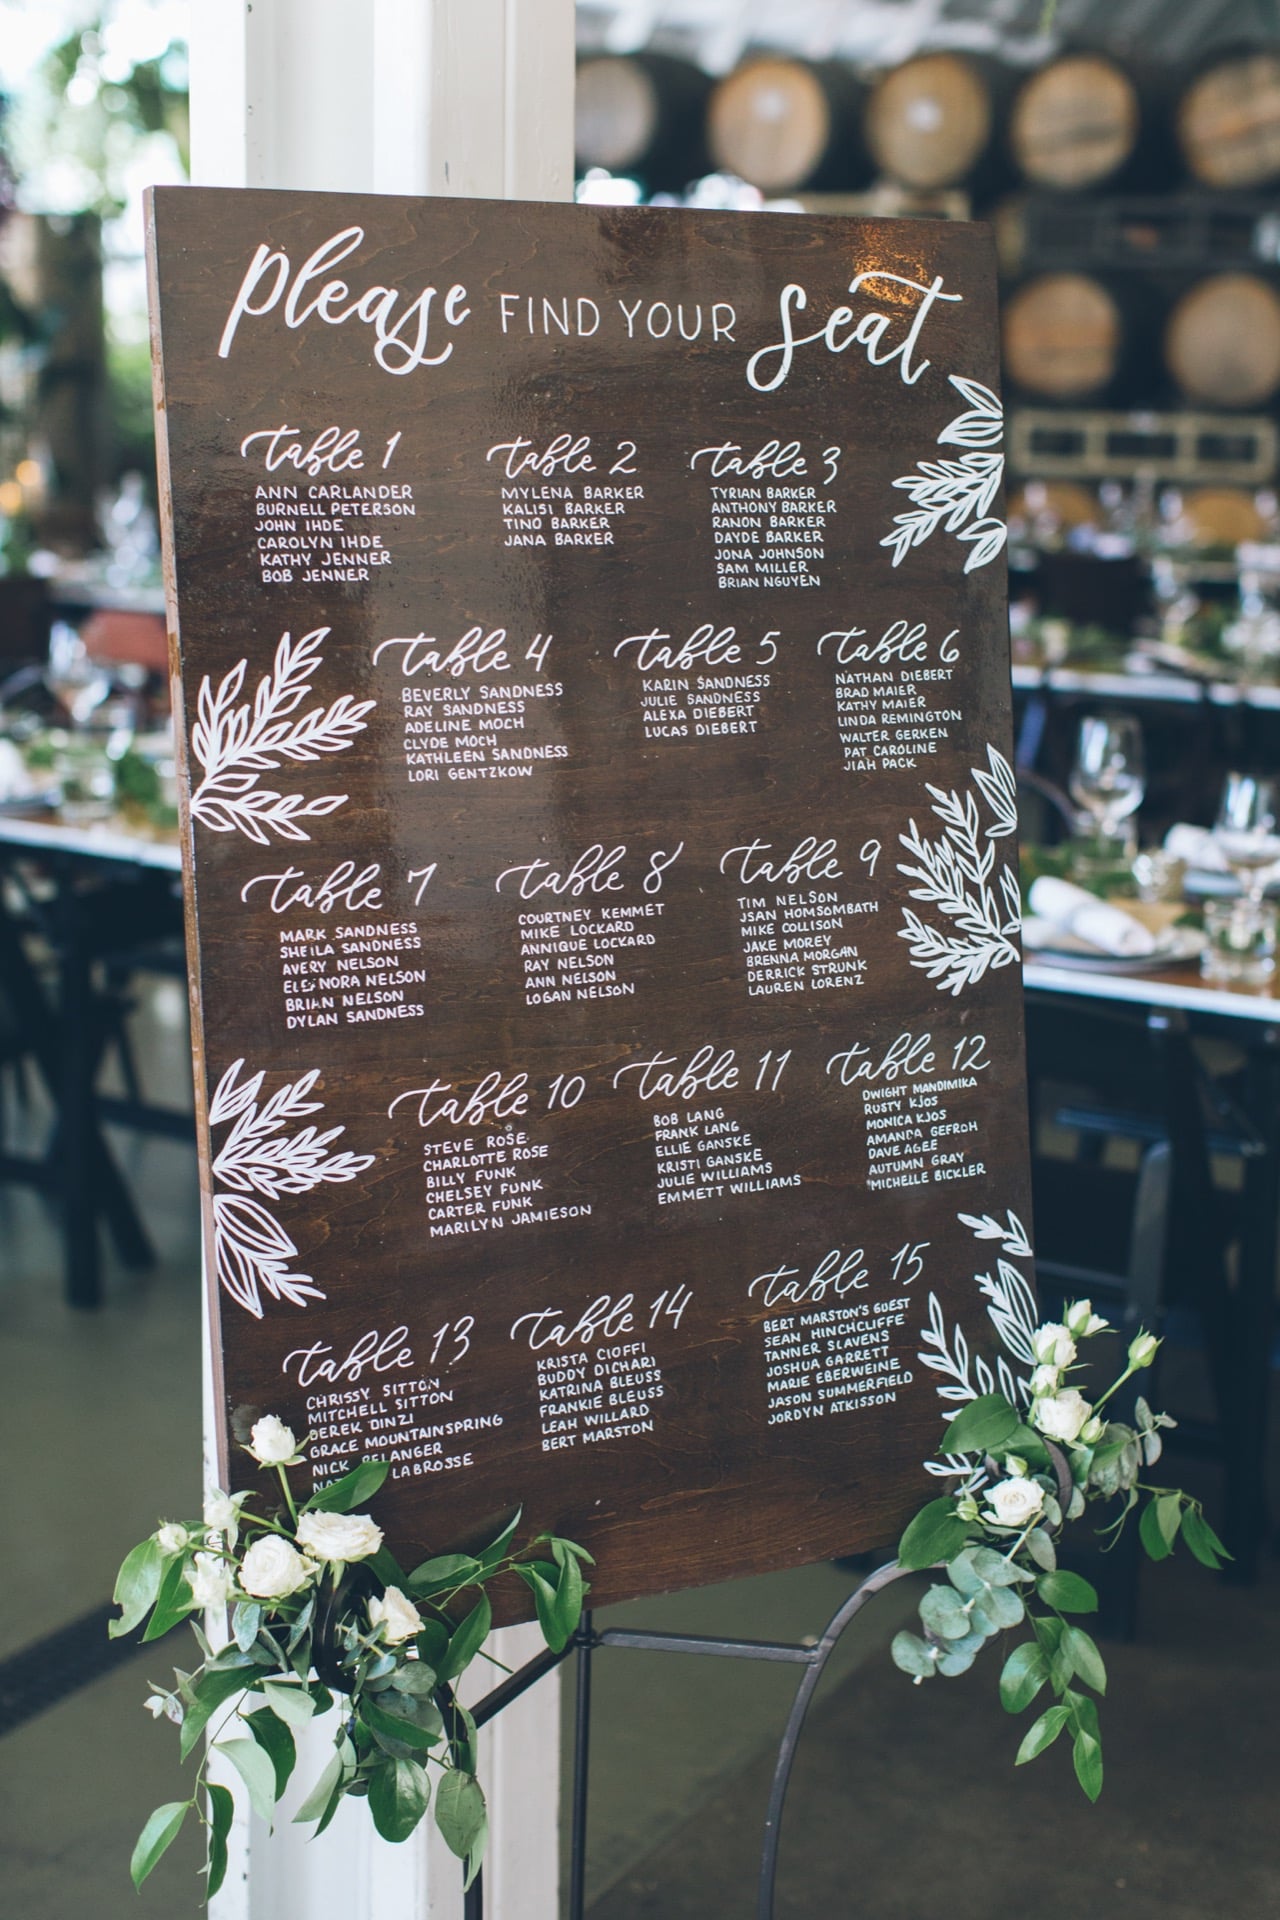 Please FIND YOUR Seat
Table 1
ANN CARLANDER
BURNELL PETERSON
JOHN IHDE
CAROLYN IHDE
KATHY JENNER
BOB JENNER
Table 2
MYLENA BARKER
KALISI BARKER
TINO BARKER
JANA BARKER
Table 3
TYRIAN BARKER
ANTHONY BARKER
RANON BARKER
DAYDE BARKER
JONA JOHNSON
SAM MILLER
BRIAN NGUYEN
Table 4
BEVERLY SANDNESS
RAY SANDNESS
ADELINE MOCH
CLYDE MOCH
KATHLEEN SANDNESS
LORI GENTZKOW
Table 5
KARIN SANDNESS
JULIE SANDNESS
ALEXA DIEBERT
LUCAS DIEBERT
Table 6
NATHAN DIEBERT
BRAD MAIER
KATHY MAIER
LINDA REMINGTON
WALTER GERKEN
PAT CAROLINE
JIAH PACK
Table 7
MARK SANDNESS
SHEILA SANDNESS
AVERY NELSON
ELENORA NELSON
BRIAN NELSON
DYLAN SANDNESS
Table 8
COURTNEY KEMMET
MIKE LOCKARD
ANNIQUE LOCKARD
RAY NELSON
ANN NELSON
LOGAN NELSON
Table 9
TIM NELSON
JSAN HOMSOMBATH
MIKE COLLISON
JAKE MOREY
BRENNA MORGAN
DERRICK STRUNK
LAUREN LORENZ
Table 10
STEVE ROSE
CHARLOTTE ROSE
BILLY FUNK
CHELSEY FUNK
CARTER FUNK
MARILYN JAMIESON
Table 11
BOB LANG
FRANK LANG
ELLIE GANSKE
KRISTI GANSKE
JULIE WILLIAMS
EMMETT WILLIAMS
Table 12
DWIGHT MANDIMIKA
RUSTY KJOS
MONICA KJOS
AMANDA GEFROH
DAVE AGEE
AUTUMN GRAY
MICHELLE BICKLER
Table 13
CHRISSY SITTON
MITCHELL SITTON
DEREK DINZI
GRACE MOUNTAINSPRING
NICK BELANGER
LABROSSE
Table 14
KRISTA CIOFFI
BUDDY DICHARI
KATRINA BLEUSS
FRANKIE BLEUSS
LEAH WILLARD
BERT MARSTON
Table 15
BERT MARSTON'S GUEST
SEAN HINCHCLIFFE
TANNER SLAVENS
JOSHUA GARRETT
MARIE EBERWEINE
JASON SUMMERFIELD
JORDYN ATKISSON